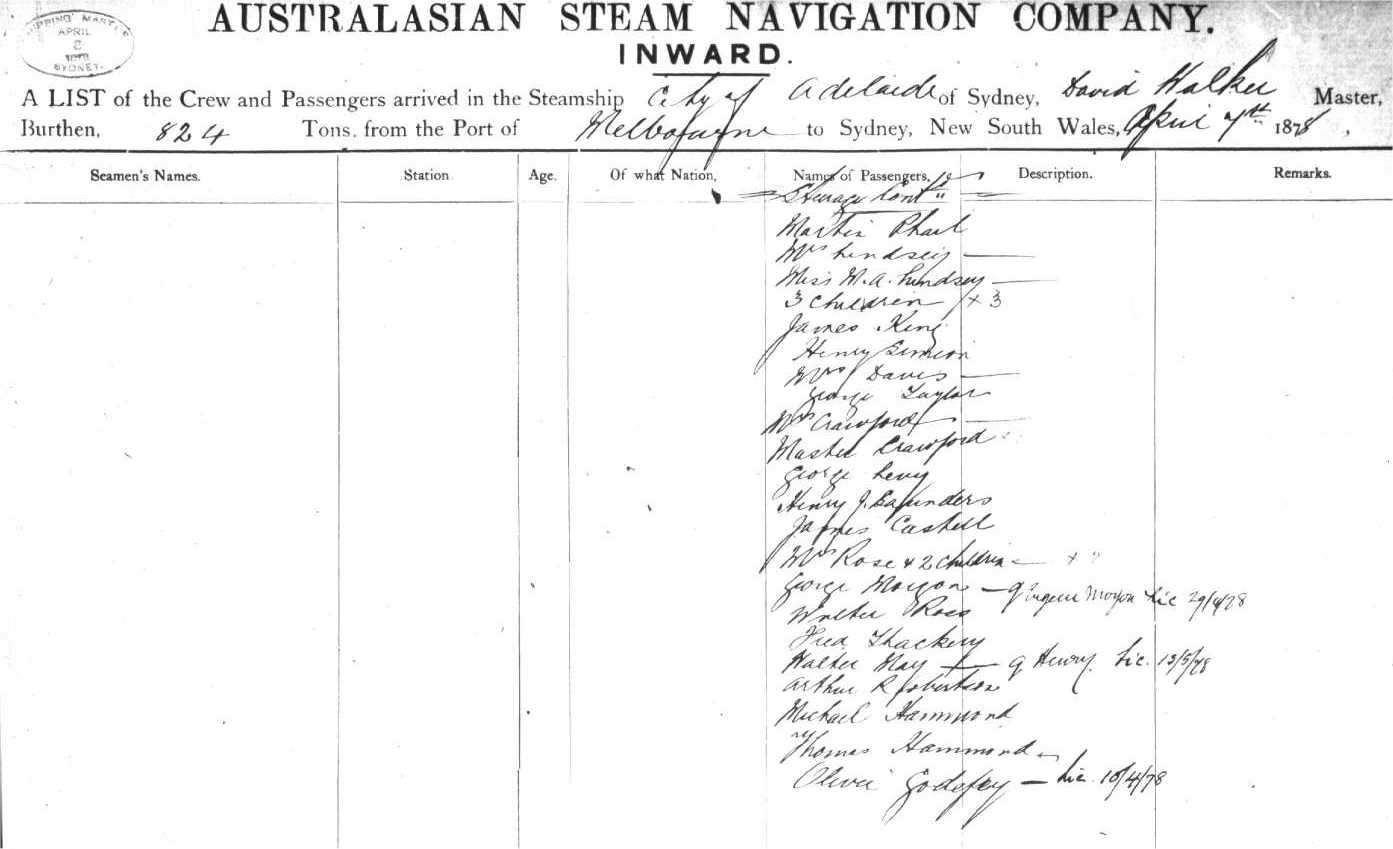 APRIL
8
1878
SYDNEY.
AUSTRALASIAN STEAM NAVIGATION COMPANY.
INWARD.
A LIST of the Crew and Passengers arrived in the Steamship City of Adelaide of Sydney, David Walker Master,
Burthen, 824 Tons. from the Port of Melbourne to Sydney, New South Wales, April 7th 1878,
Seamen's Names. Station Age. Of what Nation, Names of Passengers, Description. Remarks.
Steerage Cont
Martin Phail
Mrs Lindsey
Miss M. A. Lindsey
3 Children / x 3
James King
Henry Simeon
Mrs Davis
George Taylor
Mrs Crawford
Master Crawford
George Levy
Henry J. Saunders
James Cashell
Mrs Rose & 2 children x
George Morgan Morgan Lic 29/4/78
Walter Ross
Fred Thackery
Walter May Henry. Lic. 13/5/78
Arthur Robertson
Michael Hammond
Thomas Hammond
Godfrey Lic. 10/4/78